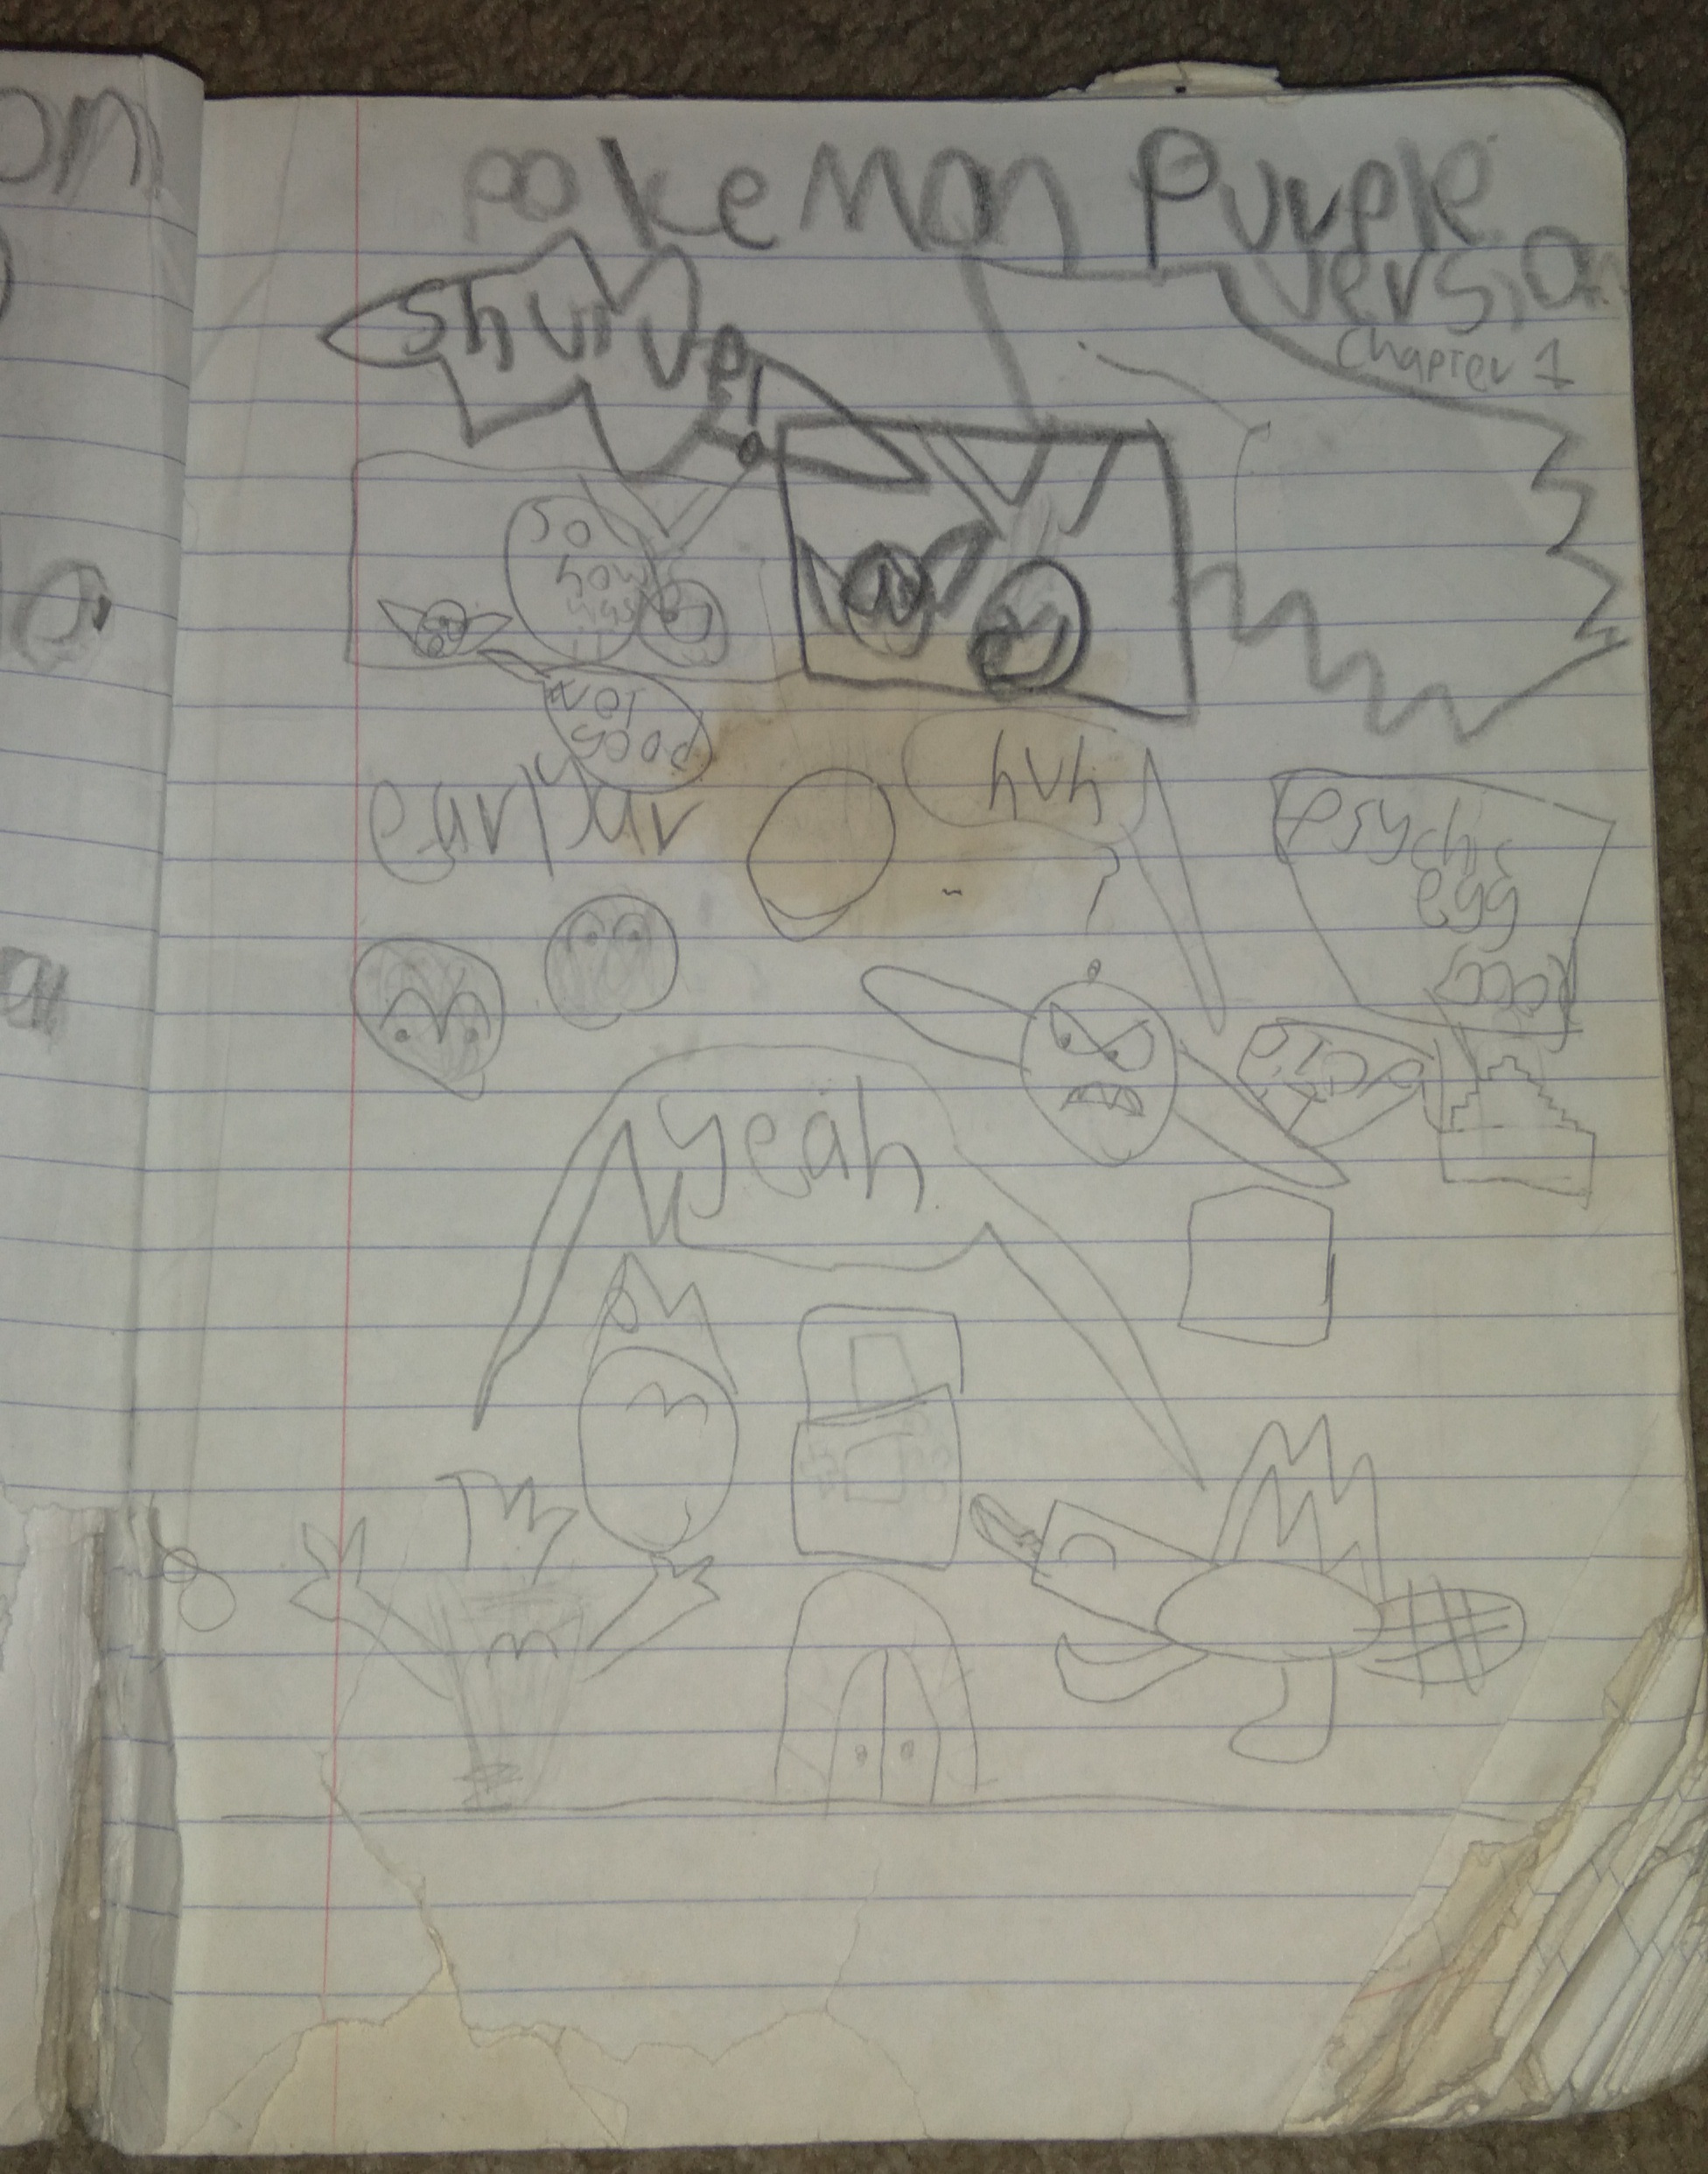 on
pokemon Purple
version
chapter 1
So
how
was
it
Not
good
huh
?
Psychic
egg
yeah